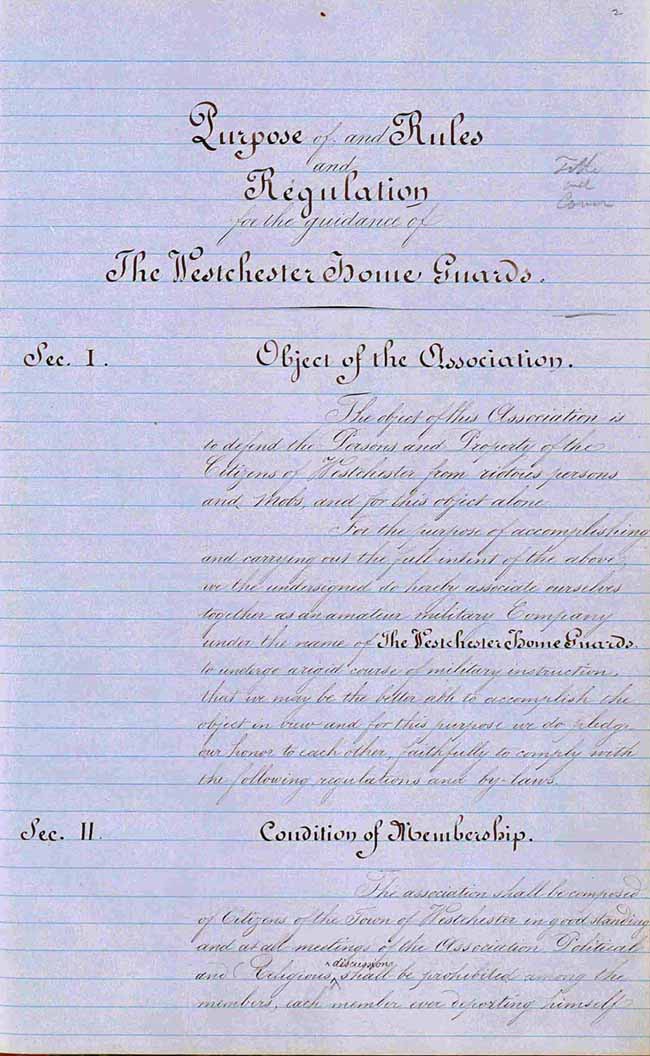 2
Purpose of and Rules
and
Regulation
for the guidance of
The Westchester Home Guards.
Title
and
Cover
Sec. I.
Object of the Association.
The object of this Association is
to defend the Persons and Property of the
Citizens of Westchester from riotous persons
and Mobs, and for this object alone
For the purpose of accomplishing
and carrying out the full intent of the above,
we the undersigned do hereby associate ourselves
together as an amateur military Company
under the name of The Westchester Home Guards.
to undergo a rigid course of military instruction,
that we may be the better able to accomplish the
object in view and for this purpose we do pledge
our honor to each other, faithfully to comply with
the following regulations and by-laws.
Sec. II.
Condition of Membership.
The association shall be composed
of Citizens of the Town of Westchester in good standing
and at all meetings of the Association Political
and Religious discussions shall be prohibited among the
members, each member ever deporting himself